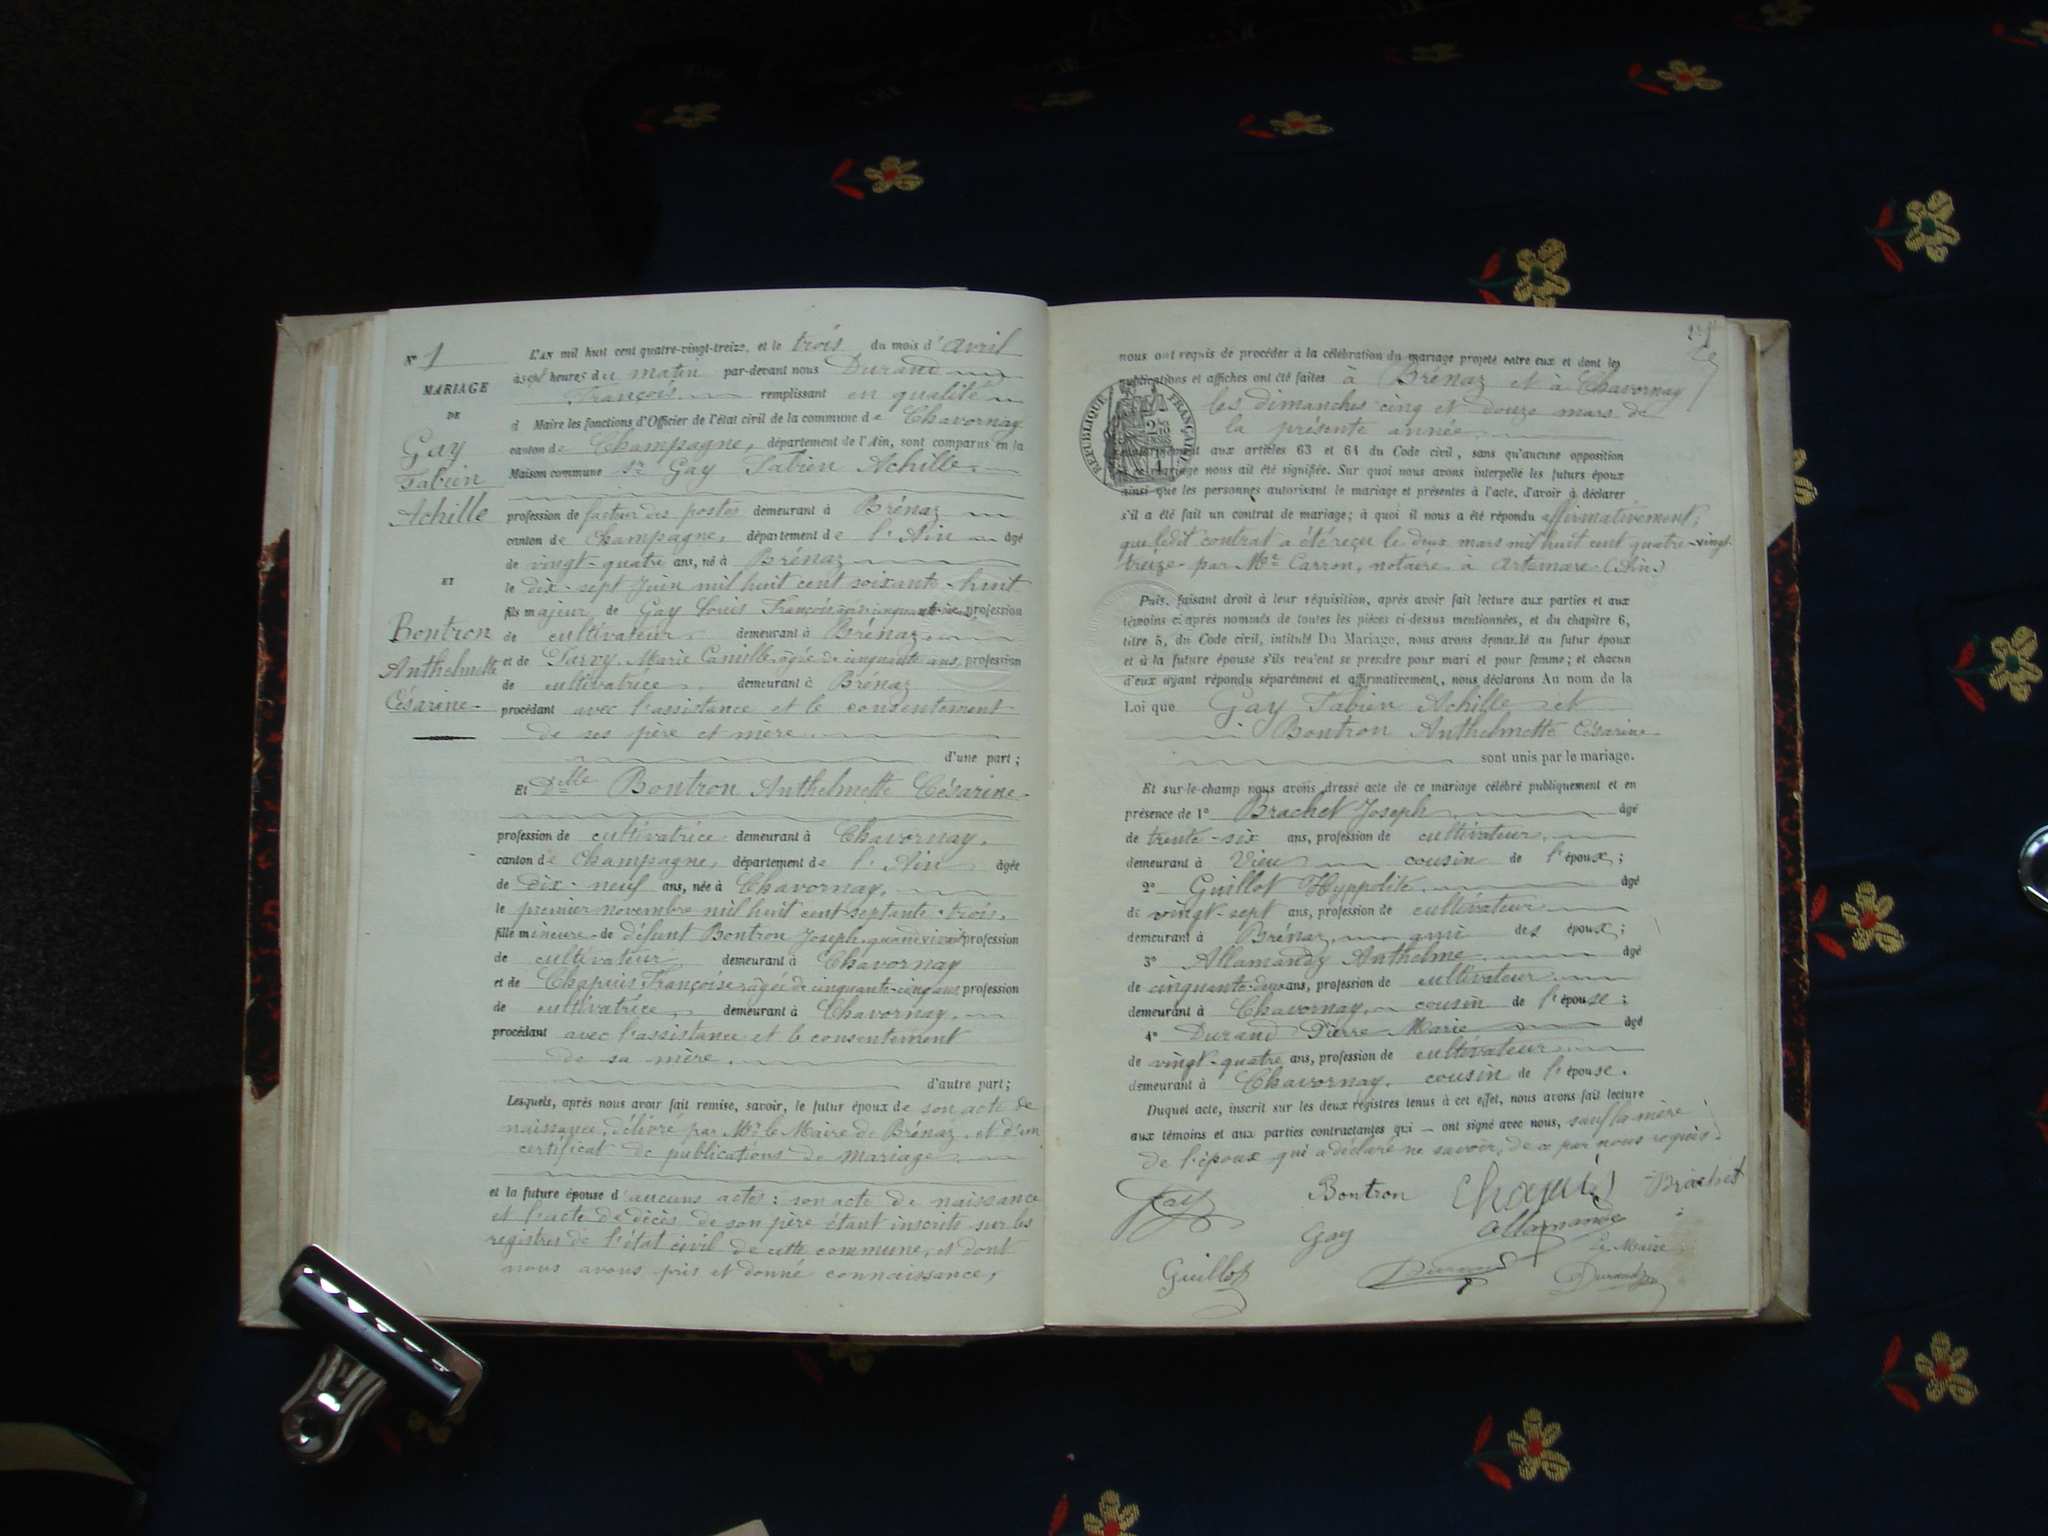 N° 1
MARIAGE
DE
Gay
Fabien
Achille
ET
Bontron
Anthelmette
Césarine
L'AN mil huit cent quatre-vingt-treize, et le trois du mois d'avril
à sept heures du matin par-devant nous Durand
François remplissant en qualité
d Maire les fonctions d'Officier de l'état civil de la commune de Chavornay
canton de Champagne, département de l'Ain, sont comparus en la
Maison commune Sr Gay Fabien Achille
profession de facteur des postes demeurant à Brénaz
canton de Champagne, département de l'Ain âgé
de vingt-quatre ans, né à Brénaz
le dix-sept Juin mil huit cent soixante-huit
fils majeur de Gay Louis François âgé de cinquante profession
de cultivateur demeurant à Brénaz
et de Tarvy Marie Camille âgée de cinquante ans, profession
de cultivatrice demeurant à Brénaz
procédant avec l'assistance et le consentement
de ses père et mère
d'une part ;
Et Delle Bontron Anthelmette Césarine
profession de cultivatrice demeurant à Chavornay,
canton de Champagne, département de l'Ain âgée
de dix-neuf ans, née à Chavornay,
le premier novembre mil huit cent septante-trois,
fille mineure de défunt Bontron Joseph, quand vivait profession
de cultivateur demeurant à Chavornay
et de Chapuis Françoise, âgée de cinquante-cinq ans profession
de cultivatrice, demeurant à Chavornay,
procédant avec l'assistance et le consentement
de sa mère
d'autre part ;
Lesquels, après nous avoir fait remise, savoir, le futur époux de son acte de
naissance, délivré par Mr le Maire de Brénaz, et d'un
certificat de publications de mariage
et la future épouse d'aucuns actes : son acte de naissance
et l'acte de décès de son père étant inscrits sur les
registres de l'état civil de cette commune, et dont
nous avons pris et donné connaissance,
nous ont requis de procéder à la célébration du mariage projeté entre eux et dont les
publications et affiches ont été faites à Brénaz et à Chavornay
les dimanches cinq et douze mars de
la présente année
RÉPUBLIQUE FRANÇAISE
conformément aux articles 63 et 64 du Code civil, sans qu'aucune opposition
mariage nous ait été signifiée. Sur quoi nous avons interpellé les futurs époux
ainsi que les personnes autorisant le mariage et présentes à l'acte, d'avoir à déclarer
s'il a été fait un contrat de mariage ; à quoi il nous a été répondu affirmativement,
que ledit contrat a été reçu le deux mars mil huit cent quatre-vingt-
treize par Me Carron, notaire à Artemare (Ain)
Puis, faisant droit à leur réquisition, après avoir fait lecture aux parties et aux
témoins ci-après nommés de toutes les pièces ci-dessus mentionnées, et du chapitre 6,
titre 5, du Code civil, intitulé Du Mariage, nous avons demandé au futur époux
et à la future épouse s'ils veulent se prendre pour mari et pour femme ; et chacun
d'eux ayant répondu séparément et affirmativement, nous déclarons Au nom de la
Loi que Gay Fabien Achille et
Bontron Anthelmette Césarine
sont unis par le mariage.
Et sur-le-champ nous avons dressé acte de ce mariage célébré publiquement et en
présence de 1° Brachet Joseph âgé
de trente-six ans, profession de cultivateur
demeurant à Vieu cousin de l'époux ;
2° Guillot Hyppolite âgé
de vingt-sept ans, profession de cultivateur
demeurant à Brénaz ami des époux ;
3° Allamandy Anthelme âgé
de cinquante-deux ans, profession de cultivateur
demeurant à Chavornay, cousin de l'épouse ;
4° Durand Pierre Marie âgé
de vingt-quatre ans, profession de cultivateur
demeurant à Chavornay, cousin de l'épouse.
Duquel acte, inscrit sur les deux registres tenus à cet effet, nous avons fait lecture
aux témoins et aux parties contractantes qui ont signé avec nous, sauf la mère
de l'époux qui a déclaré ne savoir, de ce par nous requis.
Gay Bontron Chapuis Brachet
Gay Allamande
Le Maire
Guillot Durand Durand